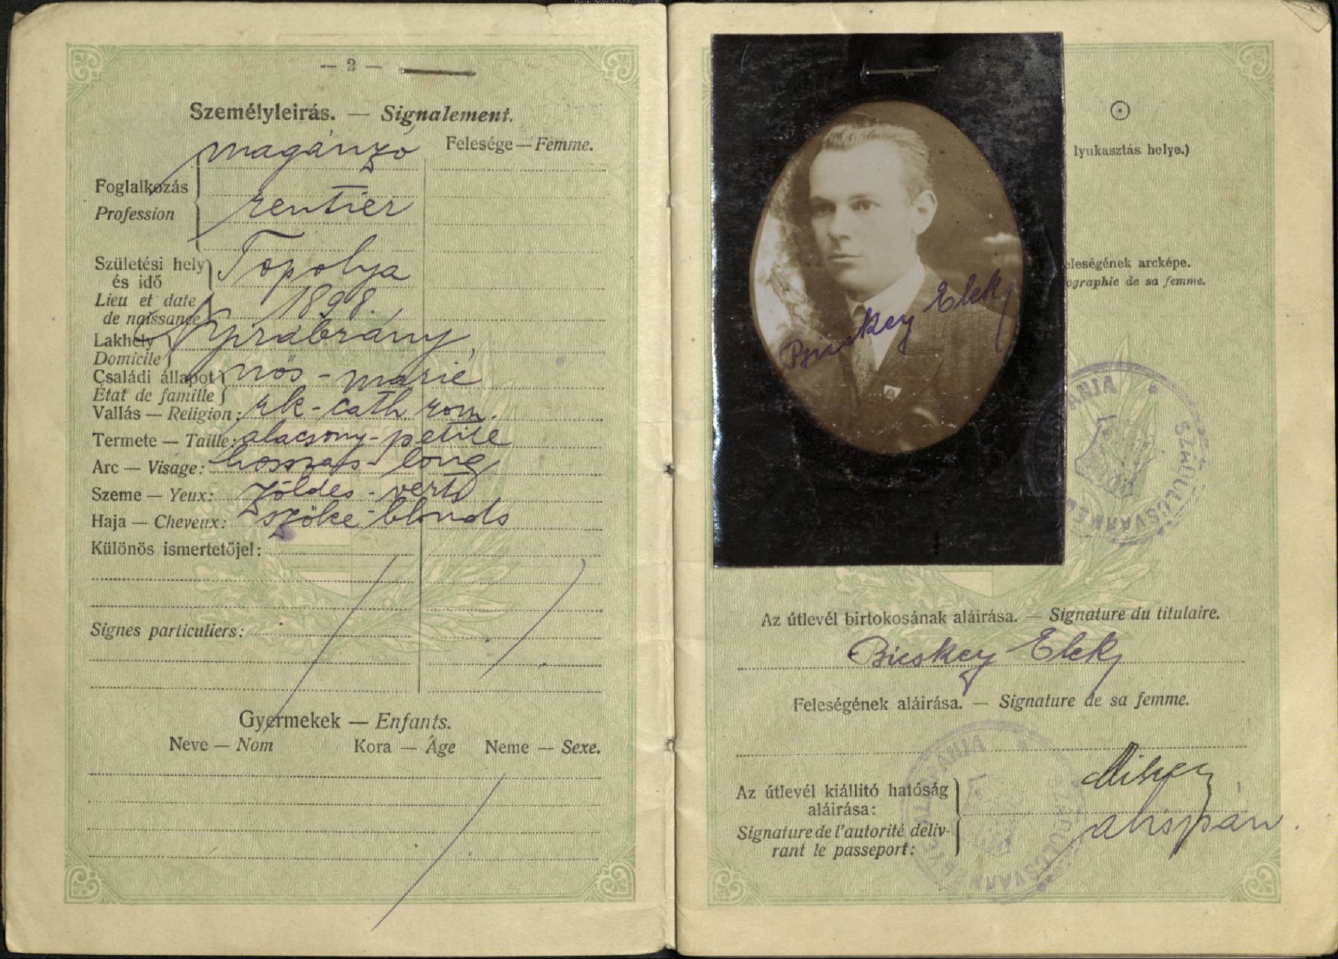 — 2 —
Személyleirás. — Signalement.
Felesége — Femme.
magánzó
Foglalkozás
Profession
rentier
Születési hely
és idő
Topolya
Lieu et date
de naissance
1898.
Lakhely
Domicile
Nyirábrány
Családi állapot
État de famille
nős - marié
Vallás — Religion: rk - cath rom.
Termete — Taille: alacsony - petite
Arc — Visage: hosszas - long
Szeme — Yeux: zöldes - verts
Haja — Cheveux: szőke - blonds
Különös ismertetőjel:
Signes particuliers:
Gyermekek — Enfants.
Neve — Nom Kora — Âge Neme — Sexe.
lyukasztás helye.)
eleségének arcképe.
ographie de sa femme.
Bicskey Elek
SZABOLCSVÁRMEGYE
Az útlevél birtokosának aláirása. — Signature du titulaire.
Bicskey Elek
Feleségének aláirása. — Signature de sa femme.
Az útlevél kiállitó hatóság
aláirása:
Signature de l'autorité déliv-
rant le passeport:
alispán
SZABOLCSVÁRMEGYE